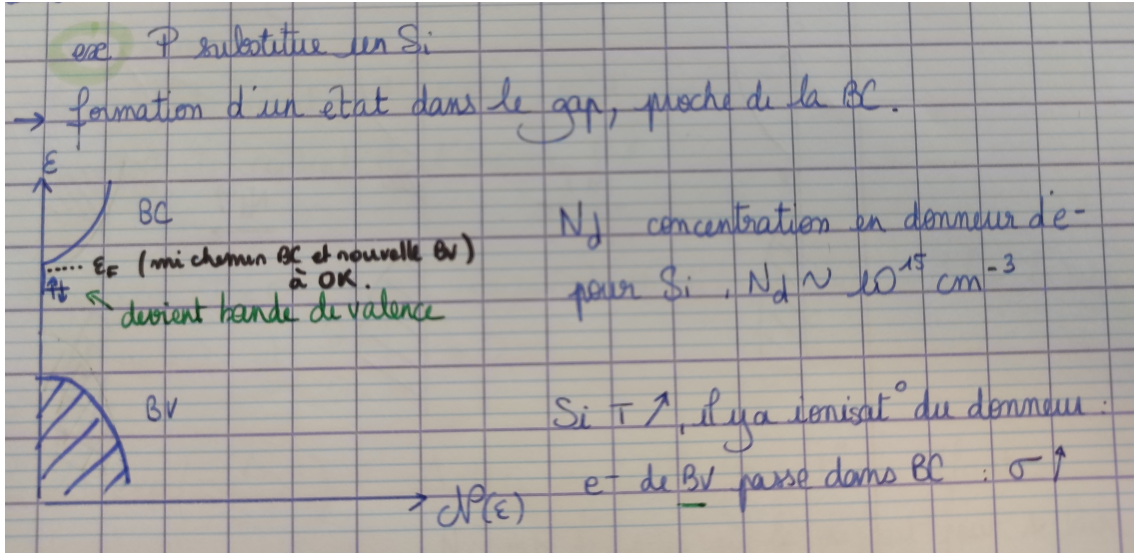 exe P substitue un Si
→ formation d'un etat dans le gap, proche de la BC.
ε
BC
..... εF (mi chemin BC et nouvelle BV)
à OK.
devient bande de valence
BV
N(ε)
Nd concentration en donneur d'e-
pour Si, Nd ~ 10^15 cm^-3
Si T ↗, il y a ionisat° du donneur :
e- de BV passe dans BC : σ ↑